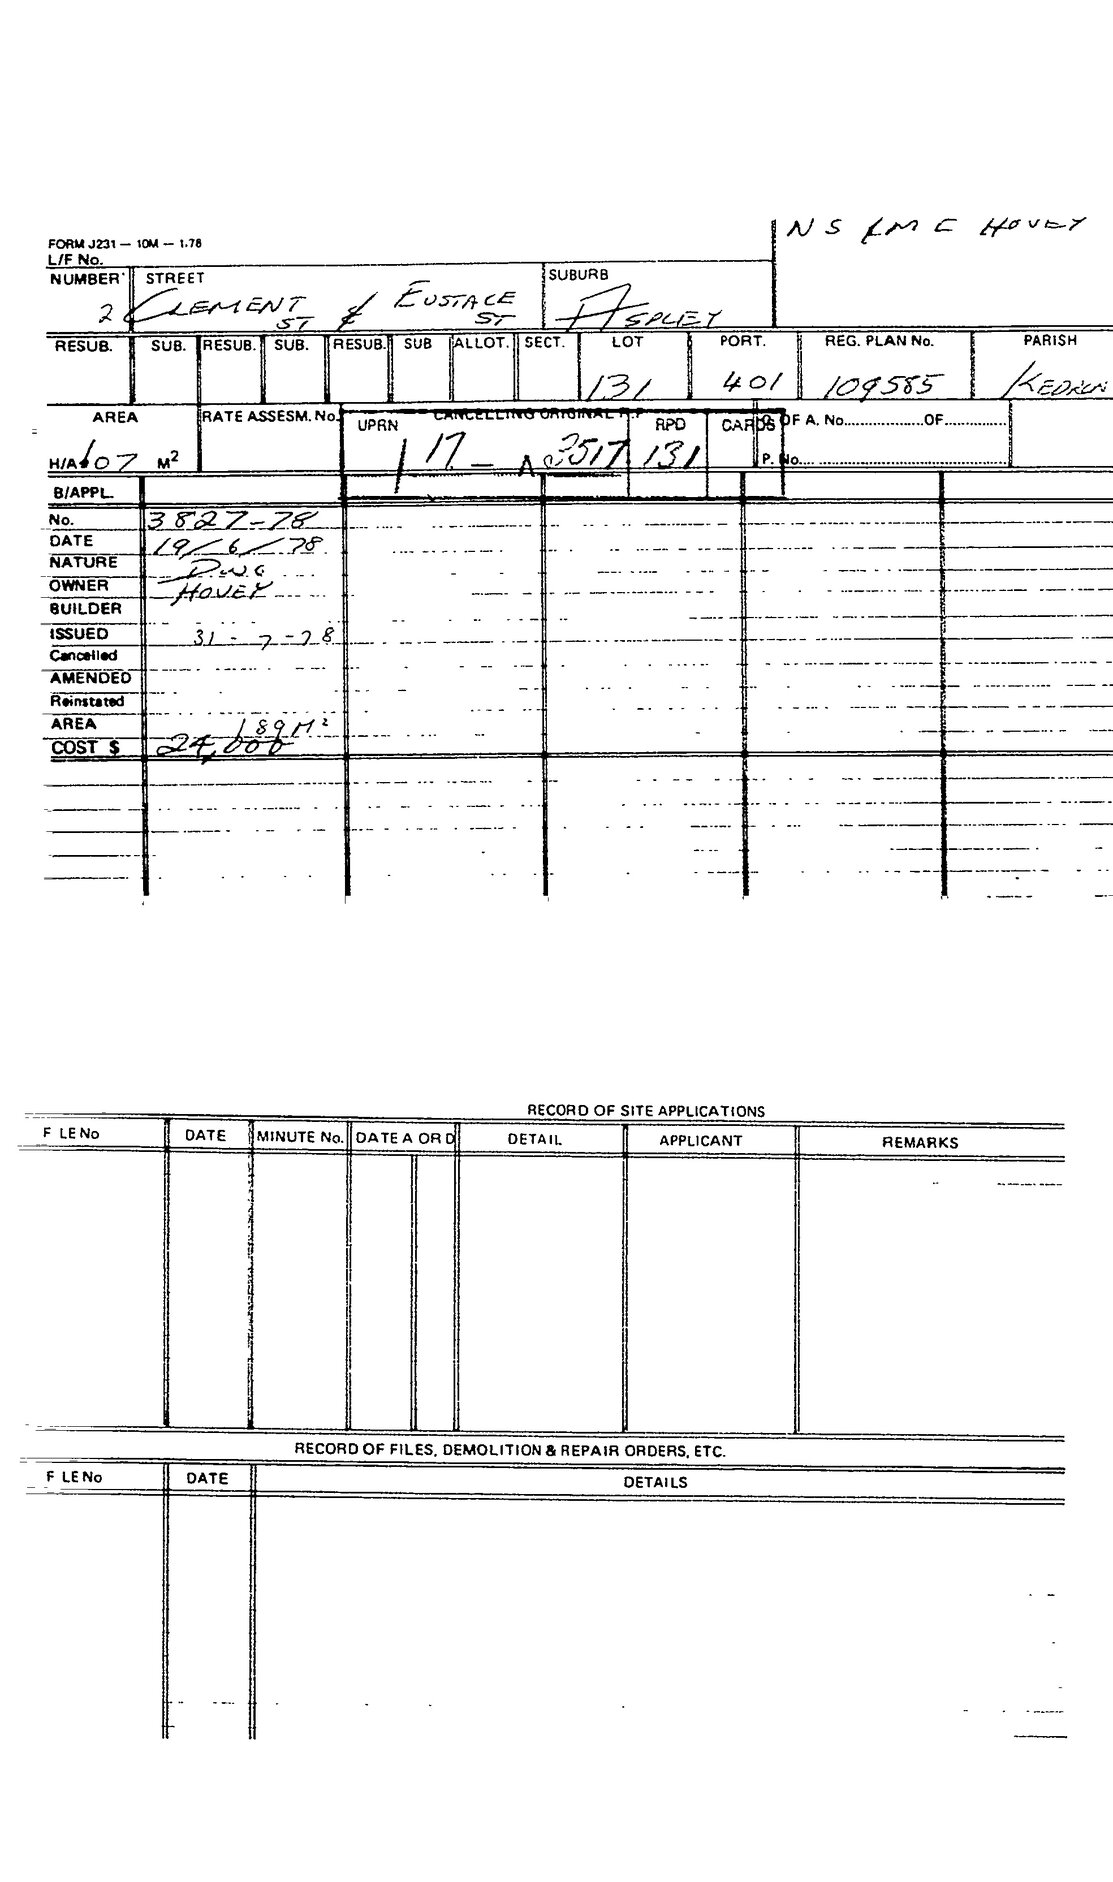 N S & M E HOVEY
FORM J231 — 10M — 1.78
L/F No.
NUMBER STREET SUBURB
2 CLEMENT ST & EUSTACE ST ASPLEY
RESUB. SUB. RESUB. SUB. RESUB. SUB ALLOT. SECT. LOT PORT. REG. PLAN No. PARISH
131 401 109585 KEDRON
AREA RATE ASSESM. No. CANCELLING ORIGINAL R.P OF A. No. OF
UPRN RPD CARDS
H/A 607 M² 17 - 3517 131 P. No.
B/APPL.
No. 3827-78
DATE 19/6/78
NATURE DWG
OWNER HOVEY
BUILDER
ISSUED 31-7-78
Cancelled
AMENDED
Reinstated
AREA 189 M²
COST $ 24,000
RECORD OF SITE APPLICATIONS
F LE No DATE MINUTE No. DATE A OR D DETAIL APPLICANT REMARKS
RECORD OF FILES, DEMOLITION & REPAIR ORDERS, ETC.
F LE No DATE DETAILS